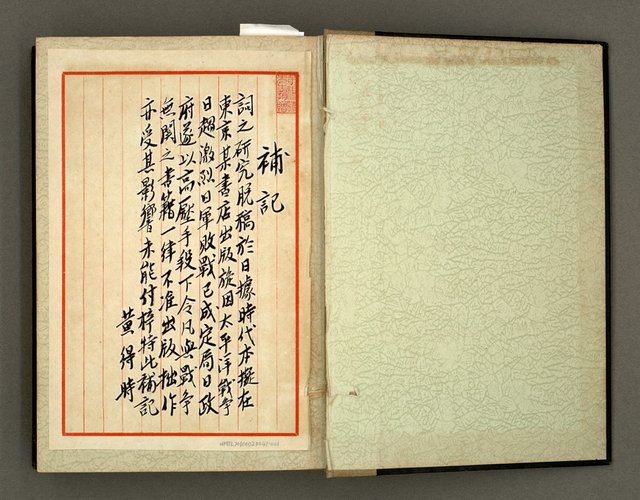 補記
詞之研究脫稿於日據時代本擬在
東京某書店出版旋因太平洋戰爭
日趨激烈日軍敗戰已成定局日政
府遂以高壓手段下令凡與戰爭
無關之書籍一律不准出版拙作
亦受其影響未能付梓特此補記
黃得時